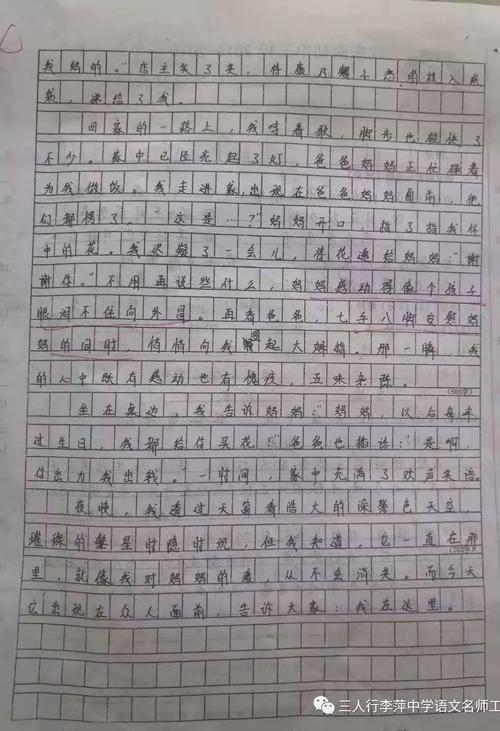 我妈的。"店主笑了笑,将康乃馨小心的放入纸
袋,递给了我。
回家的一路上,我哼着歌,脚步也轻快了
不少。家中已经亮起了灯,爸爸妈妈正忙碌着
为我做饭。我走进家,出现在爸爸妈妈面前,他
们都愣了,"这是…?"妈妈开口,指了指我怀
中的花。我迟疑了一会儿,将花递给妈妈:"谢
谢你。"不用再说些什么,妈妈感动得像个孩子
眼泪不住向外冒。再看爸爸,七手八脚安慰妈
妈的同时 悄悄向我竖起大姆指。那一瞬,我
的心中既有感动也有愧疚,五味杂陈。
(600字)
坐在桌边,我告诉妈妈:"妈妈,以后每年
过生日,我都给你买花!"爸爸也插话:"是啊,
你出力我出钱。"一时间,家中充满了欢声笑语。
夜晚,我透过天窗看浩大的深蓝色天空,
璀璨的繁星时隐时现,但我知道,它一直在那
里,就像我对妈妈的爱,从不会消失。而今天
它出现在众人面前,告诉大家:我在这里。
三人行李萍中学语文名师工